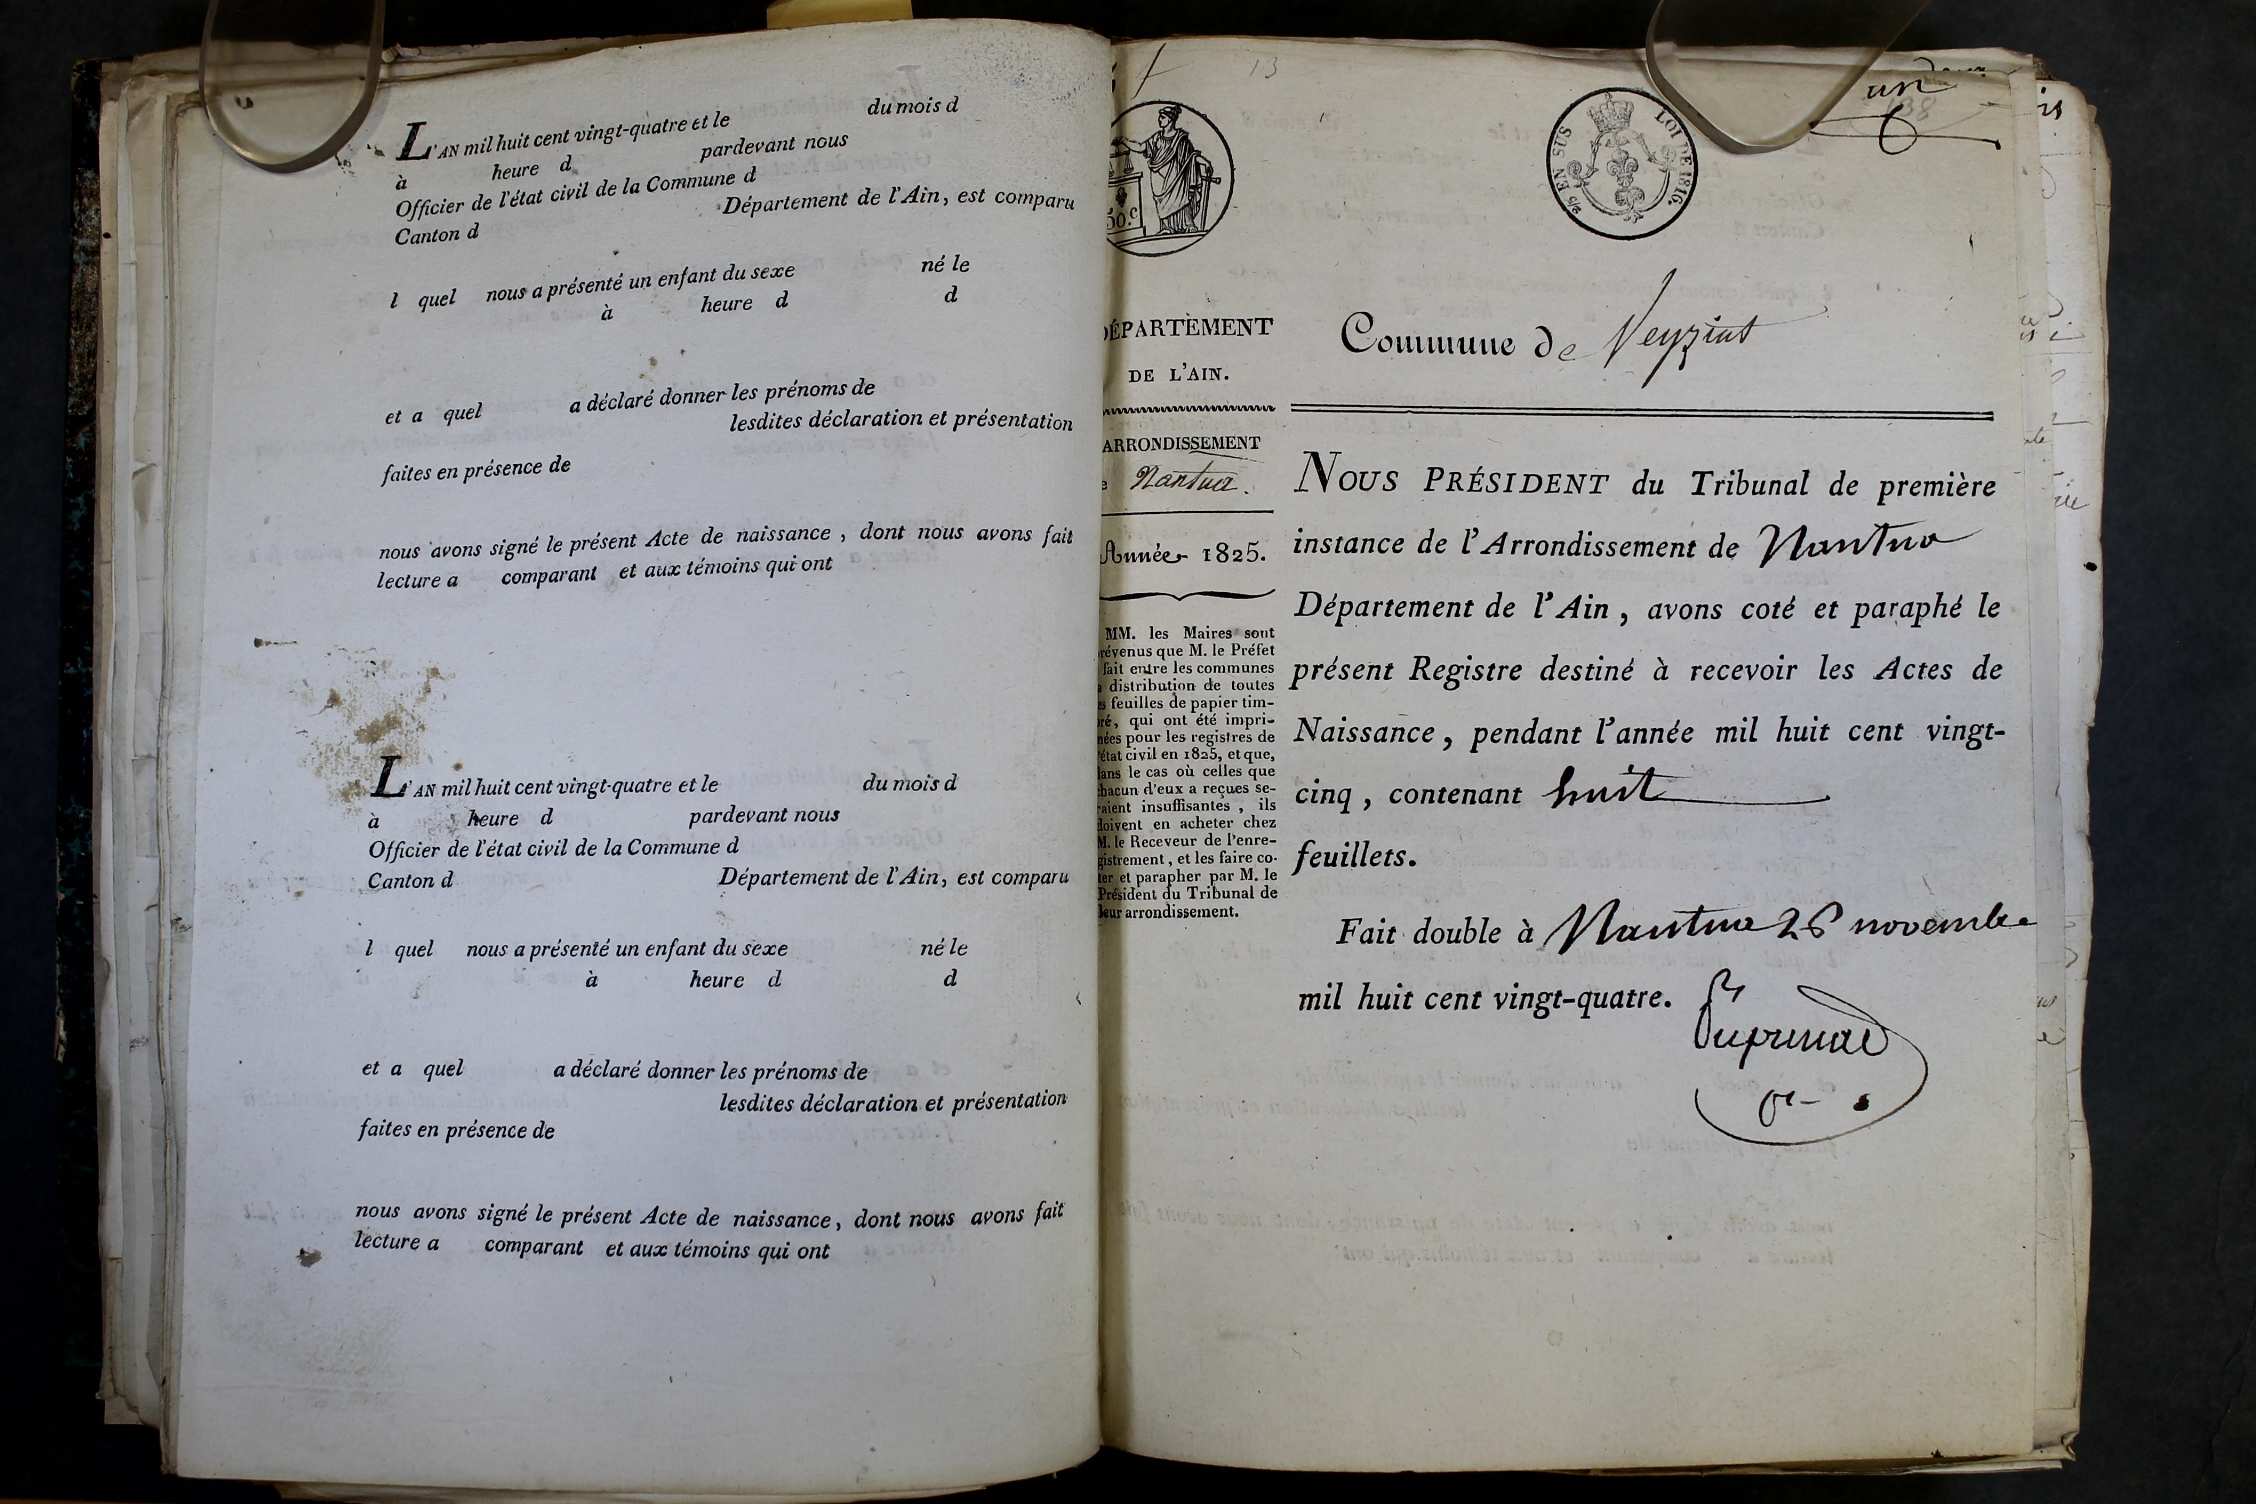 L'AN mil huit cent vingt-quatre et le du mois d
à heure d pardevant nous
Officier de l'état civil de la Commune d
Canton d Département de l'Ain, est comparu
l quel nous a présenté un enfant du sexe né le
à heure d d
et a quel a déclaré donner les prénoms de
lesdites déclaration et présentation
faites en présence de
nous avons signé le présent Acte de naissance, dont nous avons fait
lecture a comparant et aux témoins qui ont
L'AN mil huit cent vingt-quatre et le du mois d
à heure d pardevant nous
Officier de l'état civil de la Commune d
Canton d Département de l'Ain, est comparu
l quel nous a présenté un enfant du sexe né le
à heure d d
et a quel a déclaré donner les prénoms de
lesdites déclaration et présentation
faites en présence de
nous avons signé le présent Acte de naissance, dont nous avons fait
lecture a comparant et aux témoins qui ont
13
un
138
50.c
EN SUS
LOI DE 1816.
DÉPARTEMENT
DE L'AIN.
ARRONDISSEMENT
e Nantua.
Année 1825.
MM. les Maires sont
révenus que M. le Préfet
fait entre les communes
a distribution de toutes
es feuilles de papier tim-
ré, qui ont été impri-
mées pour les registres de
l'état civil en 1825, et que,
dans le cas où celles que
chacun d'eux a reçues se-
raient insuffisantes, ils
doivent en acheter chez
M. le Receveur de l'enre-
gistrement, et les faire co-
ter et parapher par M. le
Président du Tribunal de
leur arrondissement.
Commune de Veyziat
NOUS PRÉSIDENT du Tribunal de première
instance de l'Arrondissement de Nantua
Département de l'Ain, avons coté et paraphé le
présent Registre destiné à recevoir les Actes de
Naissance, pendant l'année mil huit cent vingt-
cinq, contenant huit
feuillets.
Fait double à Nantua 26 novembre
mil huit cent vingt-quatre.